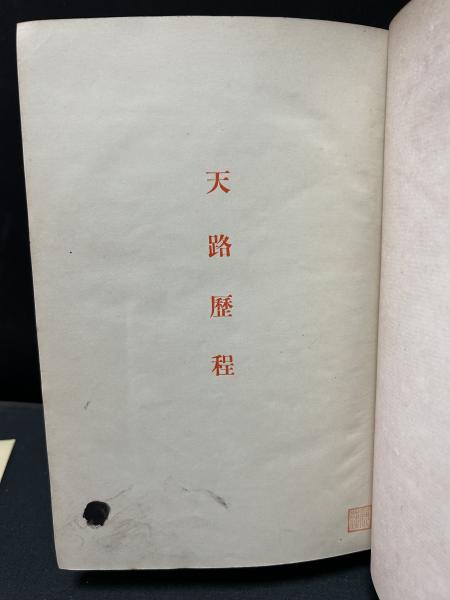 天路歷程